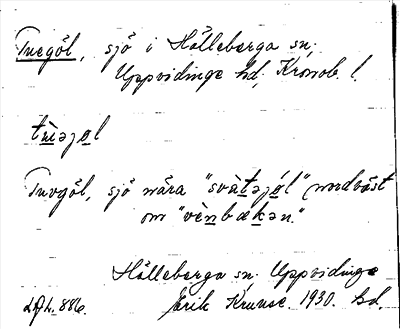 Tuegöl, sjö i Hälleberga sn,
Uppvidinge hd, Kronob. l.
tùəjo̲l
Tuvgöl, sjö nära "svàt̲əjó̲l" nordväst
om "vèn̲bæk̲ən."
Hälleberga sn. Uppvidinge
Erik Kruuse. 1930. hd.